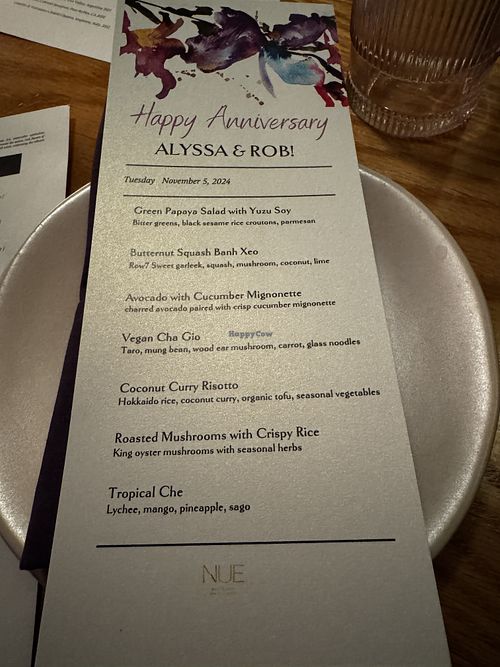 Happy Anniversary
ALYSSA & ROB!
Tuesday November 5, 2024
Green Papaya Salad with Yuzu Soy
Bitter greens, black sesame rice croutons, parmesan
Butternut Squash Banh Xeo
Row7 Sweet garleek, squash, mushroom, coconut, lime
Avocado with Cucumber Mignonette
charred avocado paired with crisp cucumber mignonette
Vegan Cha Gio
HappyCow
Taro, mung bean, wood ear mushroom, carrot, glass noodles
Coconut Curry Risotto
Hokkaido rice, coconut curry, organic tofu, seasonal vegetables
Roasted Mushrooms with Crispy Rice
King oyster mushrooms with seasonal herbs
Tropical Che
Lychee, mango, pineapple, sago
NUE